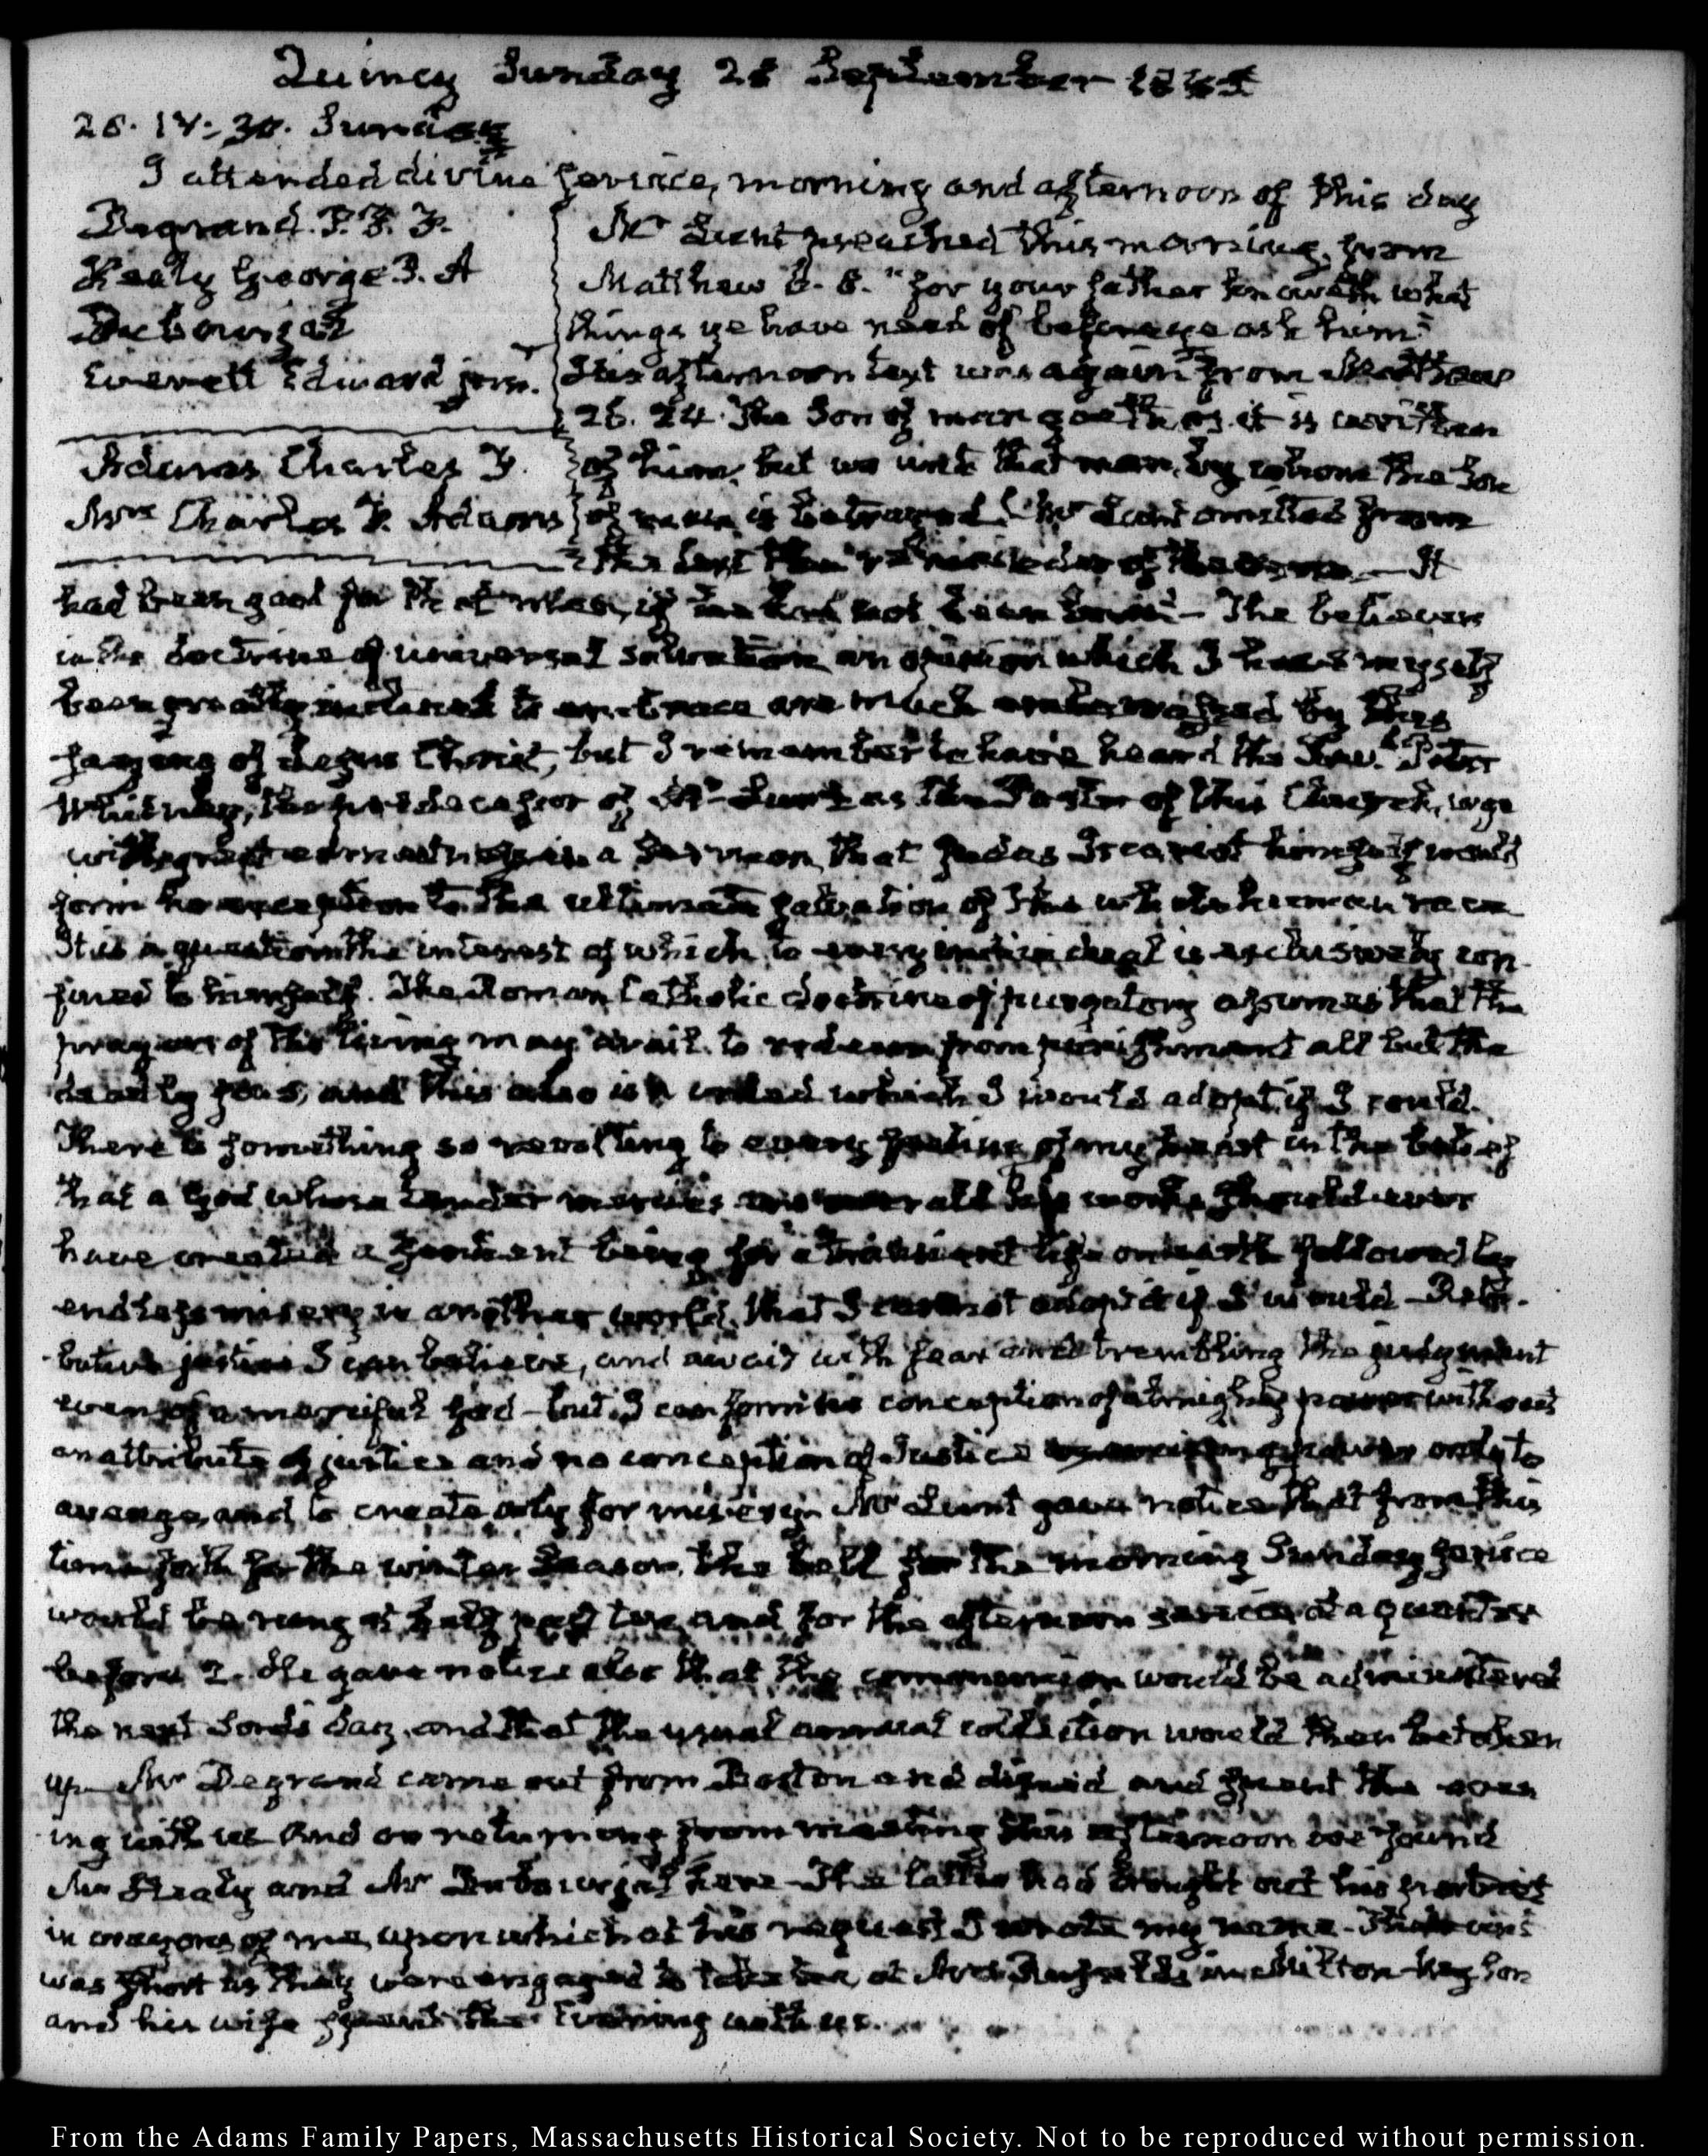 Quincy Sunday 28 September 1845
28. IV:30. Sunday
I attended divine service, morning and afternoon of this day
Degrand. P. P. F.
Healy George P. A
Dubourjal
Everett Edward jun.
Adams Charles F.
Mrs Charles F. Adams
Mr Lunt preached this morning, from
Matthew 6. 8. "for your father knoweth what
things ye have need of before ye ask him"
His afternoon text was again from Matthew
26. 24. The Son of man goeth as it is written
of him, but wo unto that man, by whom the Son
of man is betrayed! Mr Lunt omitted from
the text the remainder of the verse — It
had been good for that man, if he had not been born — The believers
in the doctrine of universal salvation an opinion which I have myself
been greatly inclined to embrace are much embarrassed by this
saying of Jesus Christ, but I remember to have heard the Revd. Peter
Whitney, the predecessor of Mr Lunt as the Pastor of this Church, urge
with great earnestness in a Sermon, that Judas Iscariot himself would
form no exception to the ultimate salvation of the whole human race
It is a question the interest of which to every individual is exclusively con-
fined to himself. The Roman Catholic doctrine of purgatory assumes that the
prayers of the living may avail to redeem from punishment all but the
deadly sins, and this also is a which I would adopt if I could.
There is something so revolting to every feeling of my heart in the belief
that a God whose tender mercies are over all his works should ever
have created a sentient being for a transient life on earth followed by
endless misery in another world, that I cannot adopt it if I would — Retri-
butive justice I can believe, and await with fear and trembling the judgment
even of a merciful God — but I can form no conception of almighty power without
an attribute of justice and no conception of Justice only to
avenge, and to create only for misery. Mr Lunt gave notice that from this
time forth for the winter Season, the bell for the morning Sunday service
would be rung at half past ten, and for the afternoon service at a quarter
before 2. He gave notice also that the communion would be administered
the next Lord's day, and that the usual annual collection would then be taken
up — Mr Degrand came out from Boston and dined and spent the even
ing with us And on returning from meeting this afternoon we found
Mr Healy and Mr Dubourjal here — The latter had brought out his portrait
in crayons of me, upon which at his request I wrote my name — Their visit
was short as they were engaged to take tea at Mrs in Milton — My Son
and his wife spent the Evening with us.
From the Adams Family Papers, Massachusetts Historical Society. Not to be reproduced without permission.